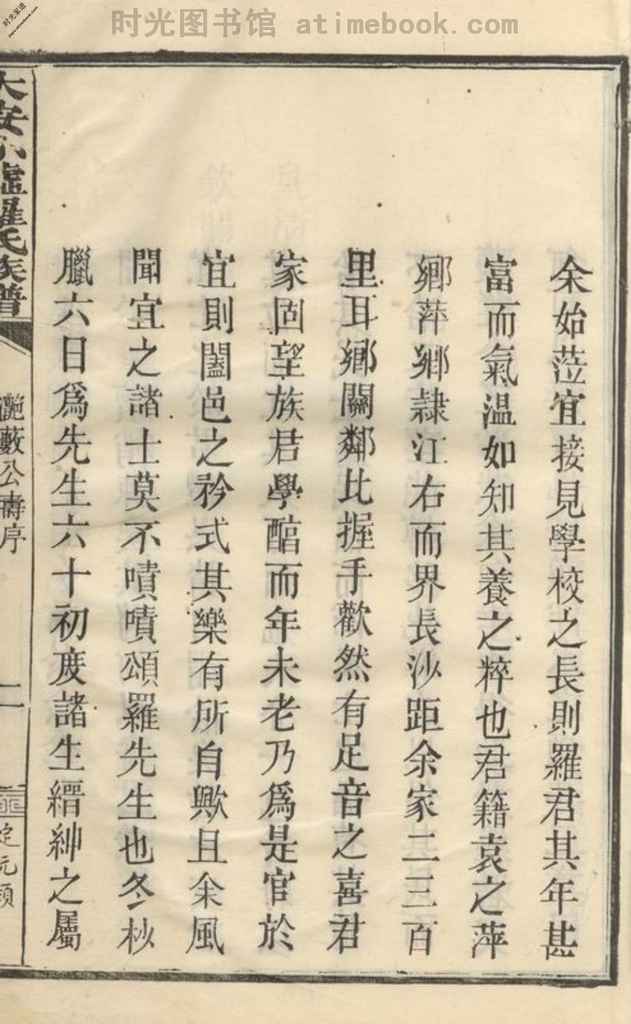 时光图书馆 atimebook.com
余始蒞宜接見學校之長則羅君其年甚
富而氣温如知其養之粹也君籍袁之萍
鄉萍鄉隷江右而界長沙距余家二三百
里耳鄉關鄰比握手歡然有足音之喜君
家固望族君學醕而年未老乃爲是官於
宜則闔邑之矜式其樂有所自歟且余風
聞宜之諸士莫不嘖嘖頌羅先生也冬杪
臘六日爲先生六十初度諸生縉紳之屬
羅氏族譜
艷藪公壽序
二